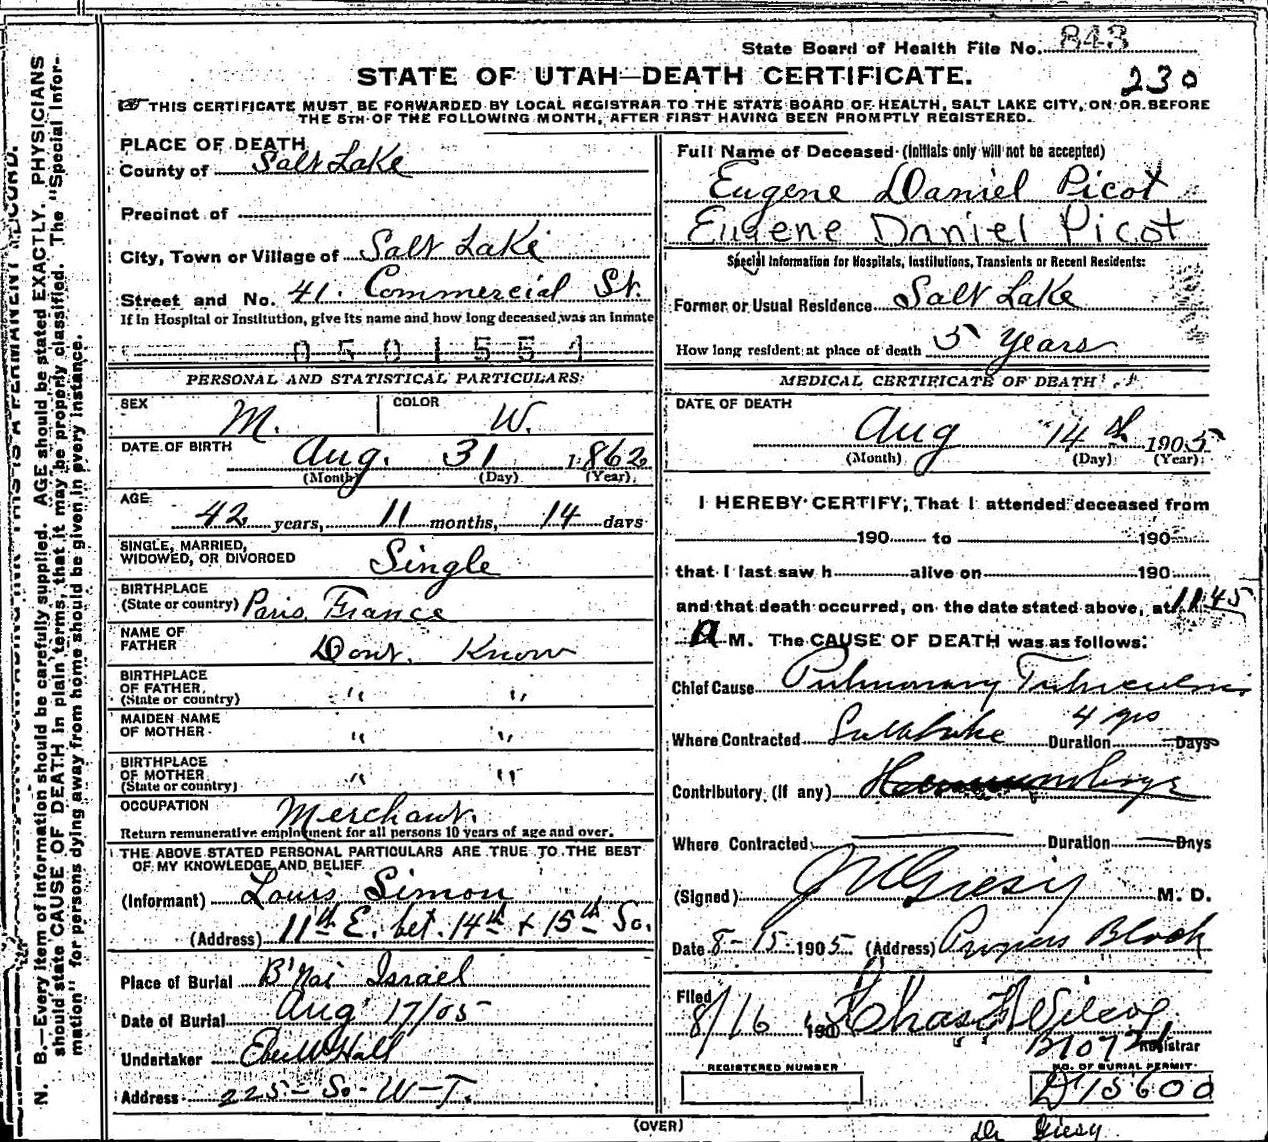 State Board of Health File No. 843
STATE OF UTAH—DEATH CERTIFICATE.
230
THIS CERTIFICATE MUST BE FORWARDED BY LOCAL REGISTRAR TO THE STATE BOARD OF HEALTH, SALT LAKE CITY, ON OR BEFORE
THE 5TH OF THE FOLLOWING MONTH, AFTER FIRST HAVING BEEN PROMPTLY REGISTERED.
PLACE OF DEATH
County of Salt Lake
Precinct of
City, Town or Village of Salt Lake
Street and No. 41. Commercial St.
If in Hospital or Institution, give its name and how long deceased was an inmate
0501551
PERSONAL AND STATISTICAL PARTICULARS:
SEX M. COLOR W.
DATE OF BIRTH Aug. 31 1862
(Month) (Day) (Year)
AGE 42 years, 11 months, 14 days
SINGLE, MARRIED,
WIDOWED, OR DIVORCED Single
BIRTHPLACE
(State or country) Paris France
NAME OF
FATHER Dont Know
BIRTHPLACE
OF FATHER,
(State or country) " "
MAIDEN NAME
OF MOTHER " "
BIRTHPLACE
OF MOTHER
(State or country) " "
OCCUPATION Merchant.
Return remunerative employment for all persons 10 years of age and over.
THE ABOVE STATED PERSONAL PARTICULARS ARE TRUE TO THE BEST
OF MY KNOWLEDGE AND BELIEF
(Informant) Louis Simon
(Address) 11th E. bet. 14th & 15th So.
Place of Burial B'Nai Israel
Date of Burial Aug 17/05
Undertaker Eber W Hall
Address 225 - So - W - T.
Full Name of Deceased (Initials only will not be accepted)
Eugene Daniel Picot
Eugene Daniel Picot
Special Information for Hospitals, Institutions, Transients or Recent Residents:
Former or Usual Residence Salt Lake
How long resident at place of death 5 Years
MEDICAL CERTIFICATE OF DEATH
DATE OF DEATH
Aug 14th 1905
(Month) (Day) (Year)
I HEREBY CERTIFY, That I attended deceased from
190 to 190
that I last saw h alive on 190
and that death occurred, on the date stated above, at 11.45
a M. The CAUSE OF DEATH was as follows:
Chief Cause Pulmonary Tuberculosis
Where Contracted Salt Lake Duration 4 yrs Days
Contributory (If any)
Where Contracted Duration Days
(Signed) Giesy M. D.
Date 8-15-1905 (Address) Block
Filed 8/16 190 Chas F Wilcox
Registrar
B1072
REGISTERED NUMBER
NO. OF BURIAL PERMIT
D 15600
(OVER)
Dr Giesy
N. B.—Every item of information should be carefully supplied. AGE should be stated EXACTLY. PHYSICIANS
should state CAUSE OF DEATH in plain terms, that it may be properly classified. The "Special Infor-
mation" for persons dying away from home should be given in every instance.
THIS IS A PERMANENT RECORD.